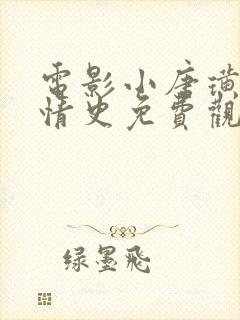 電影小唐璜
情史免費觀
绿墨飛